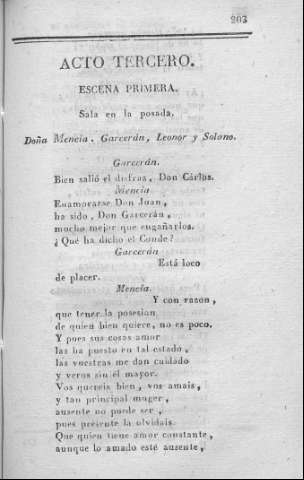 203
ACTO TERCERO.
ESCENA PRIMERA.
Sala en la posada.
Doña Mencia, Garcerán, Leonor y Solano.
Garcerán.
Bien salió el disfraz, Don Cárlos.
Mencia
Enamorarse Don Juan,
ha sido, Don Garcerán,
mucho mejor que engañarlos.
¿Qué ha dicho el Conde?
Garcerán
Está loco
de placer.
Mencia.
Y con razon,
que tener la posesion
de quien bien quiere, no es poco.
Y pues sus cosas amor
las ha puesto en tal estado,
las vuestras me dan cuidado
y veros sin él mayor.
Vos quereis bien, vos amais,
y tan principal muger,
ausente no puede ser,
pues presente la olvidais.
Que quien tiene amor constante,
aunque lo amado esté ausente,